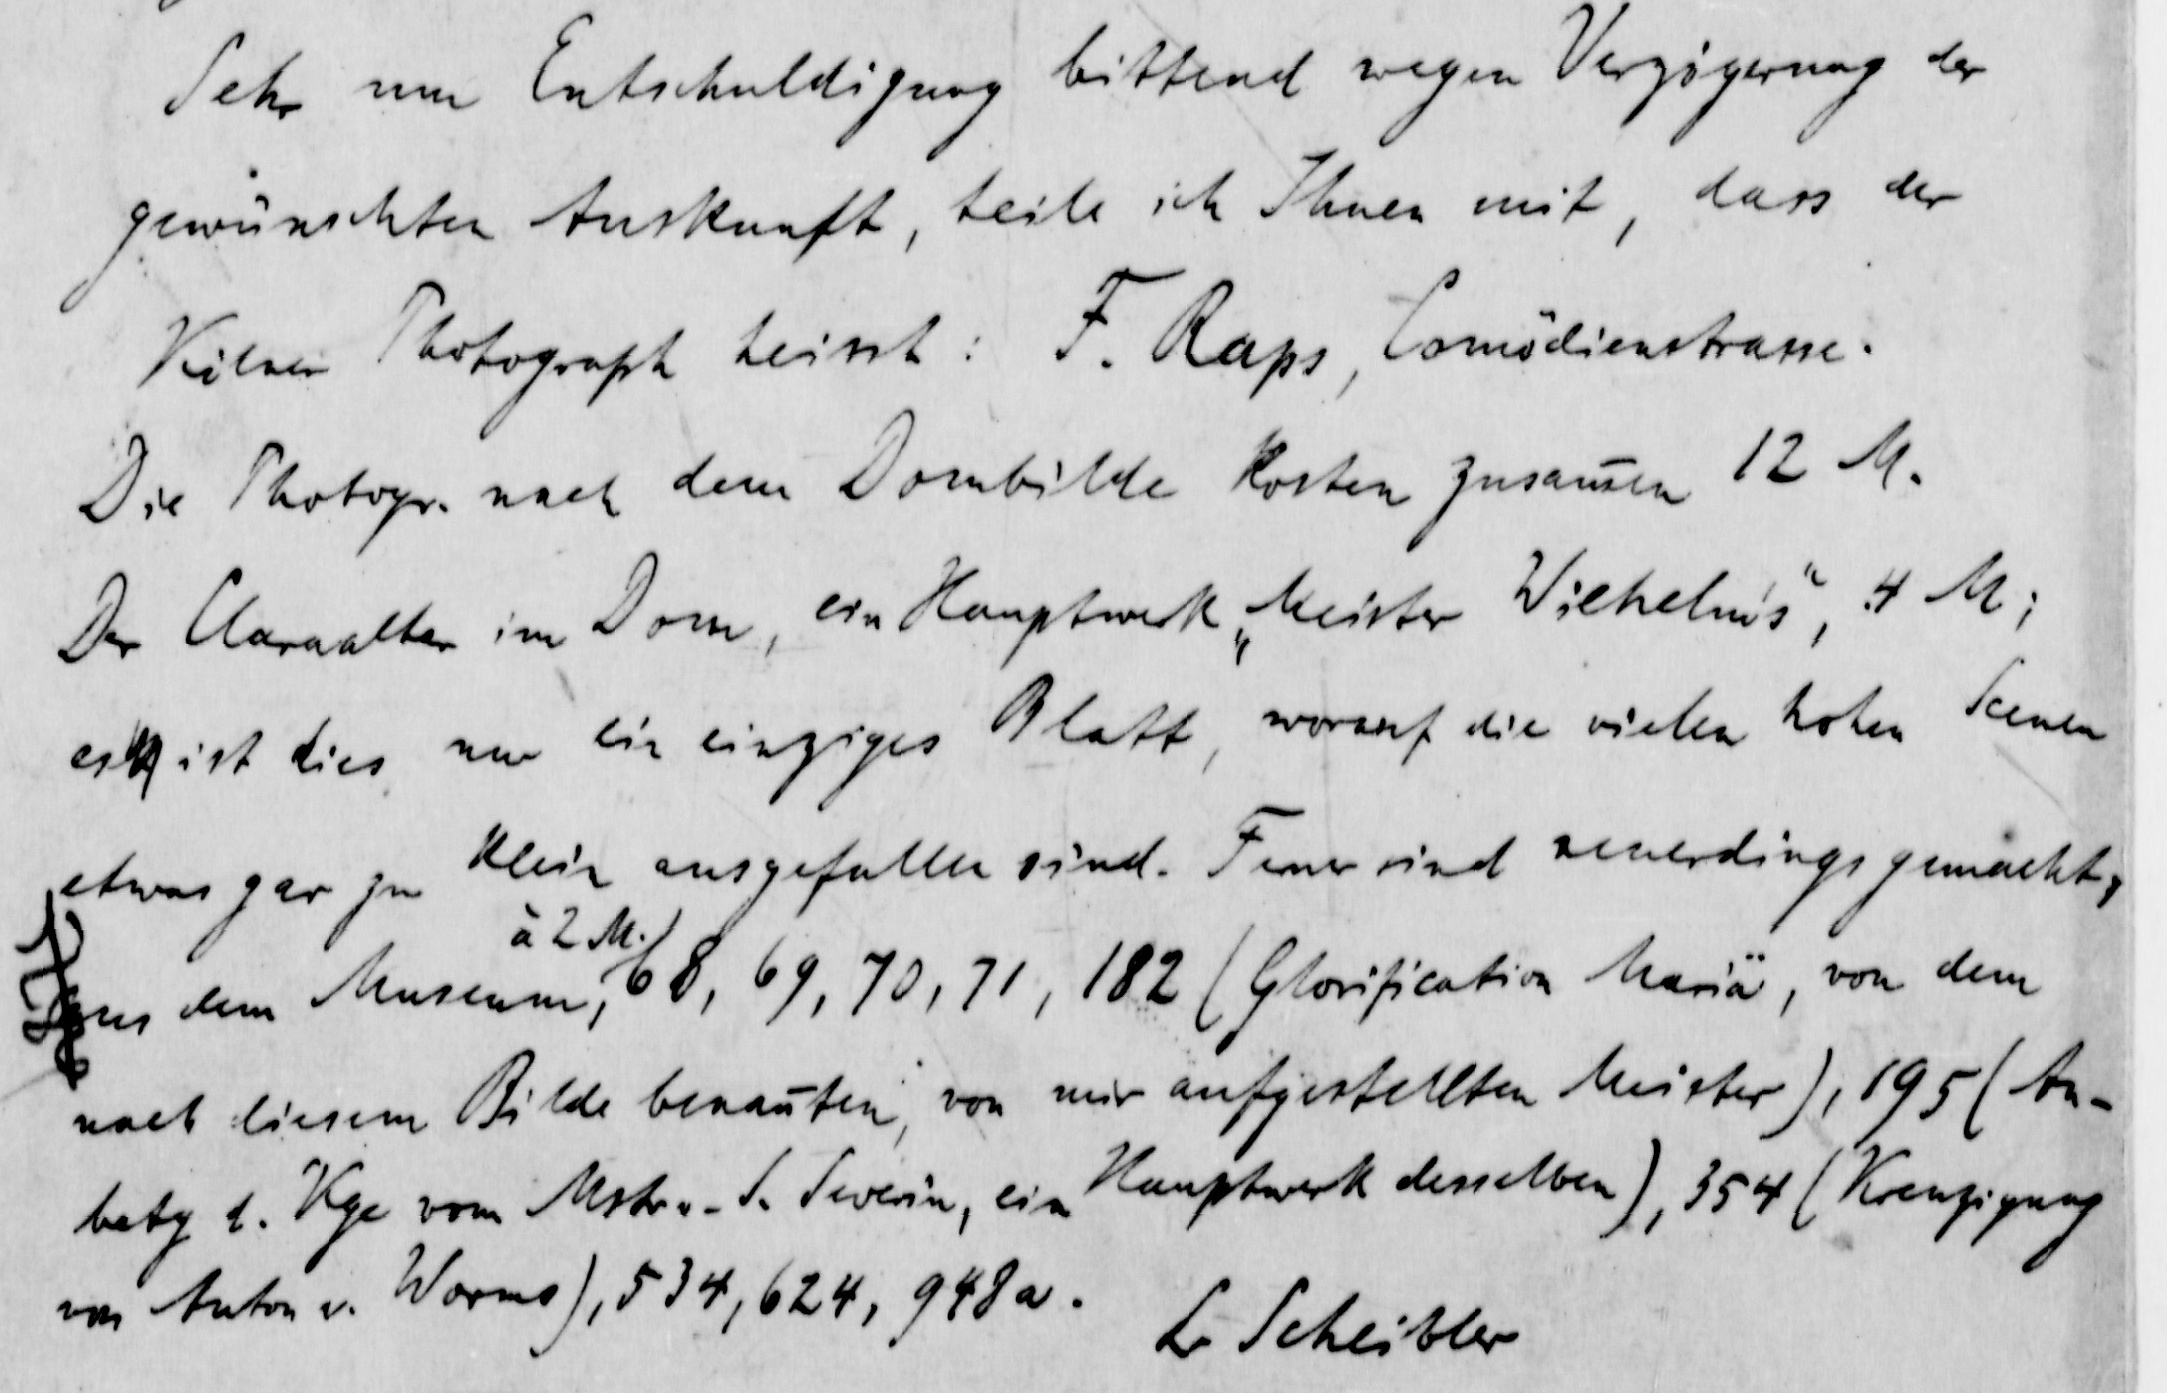 Sehr um Entschuldigung bittend wegen Verzögerung der
gewünschten Auskunft, teile ich Ihnen mit, dass der
Kölner Photograph heisst: F. Raps, Comödienstrasse.
Die Photogr. nach dem Dombilde kosten zusam̄en 12 M.
Der Claraaltar im Dom, ein Hauptwerk „Meister Wilhelms“, 4 M;
es ist dies nur ein einziges Blatt, worauf die vielen hohen Scenen
etwas gar zu klein ausgefallen sind. Ferner sind neuerdings gemacht,
à 2 M.
aus dem Museum, 68, 69, 70, 71, 182 (Glorification Mariä, von dem
nach diesem Bilde benan̄ten, von mir aufgestellten Meister), 195 (An-
betg d. Kge vom Mstr v. S. Severin, ein Hauptwerk desselben), 354 (Kreuzigung
von Anton v. Worms), 534, 624, 948a.
L Scheibler